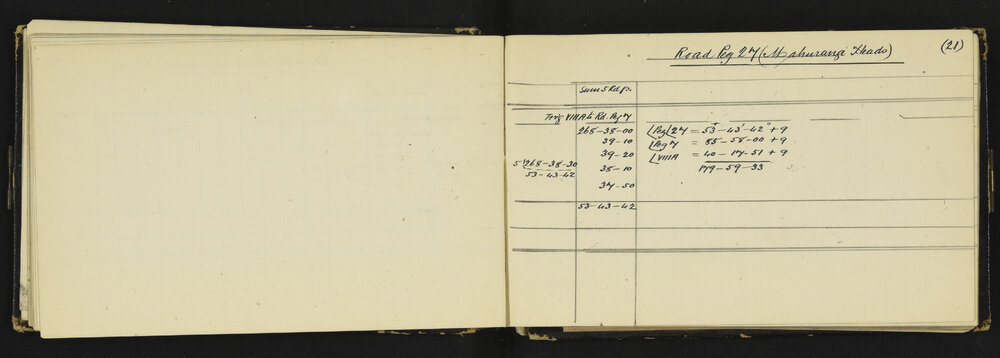 (21)
Road Peg 27 (Mahurangi Heads)
Sum 5 Rdgs.
Trig VIIIA to Rd. Peg 7
268-38-00
39-10
39-20
38-10
37-50
53-43-42
5 | 268-38-30
53-43-42
Peg 27 = 53°-43'-42" + 9
Peg 7 = 85-58-00 + 9
VIIIA = 40-17-51 + 9
179-59-33